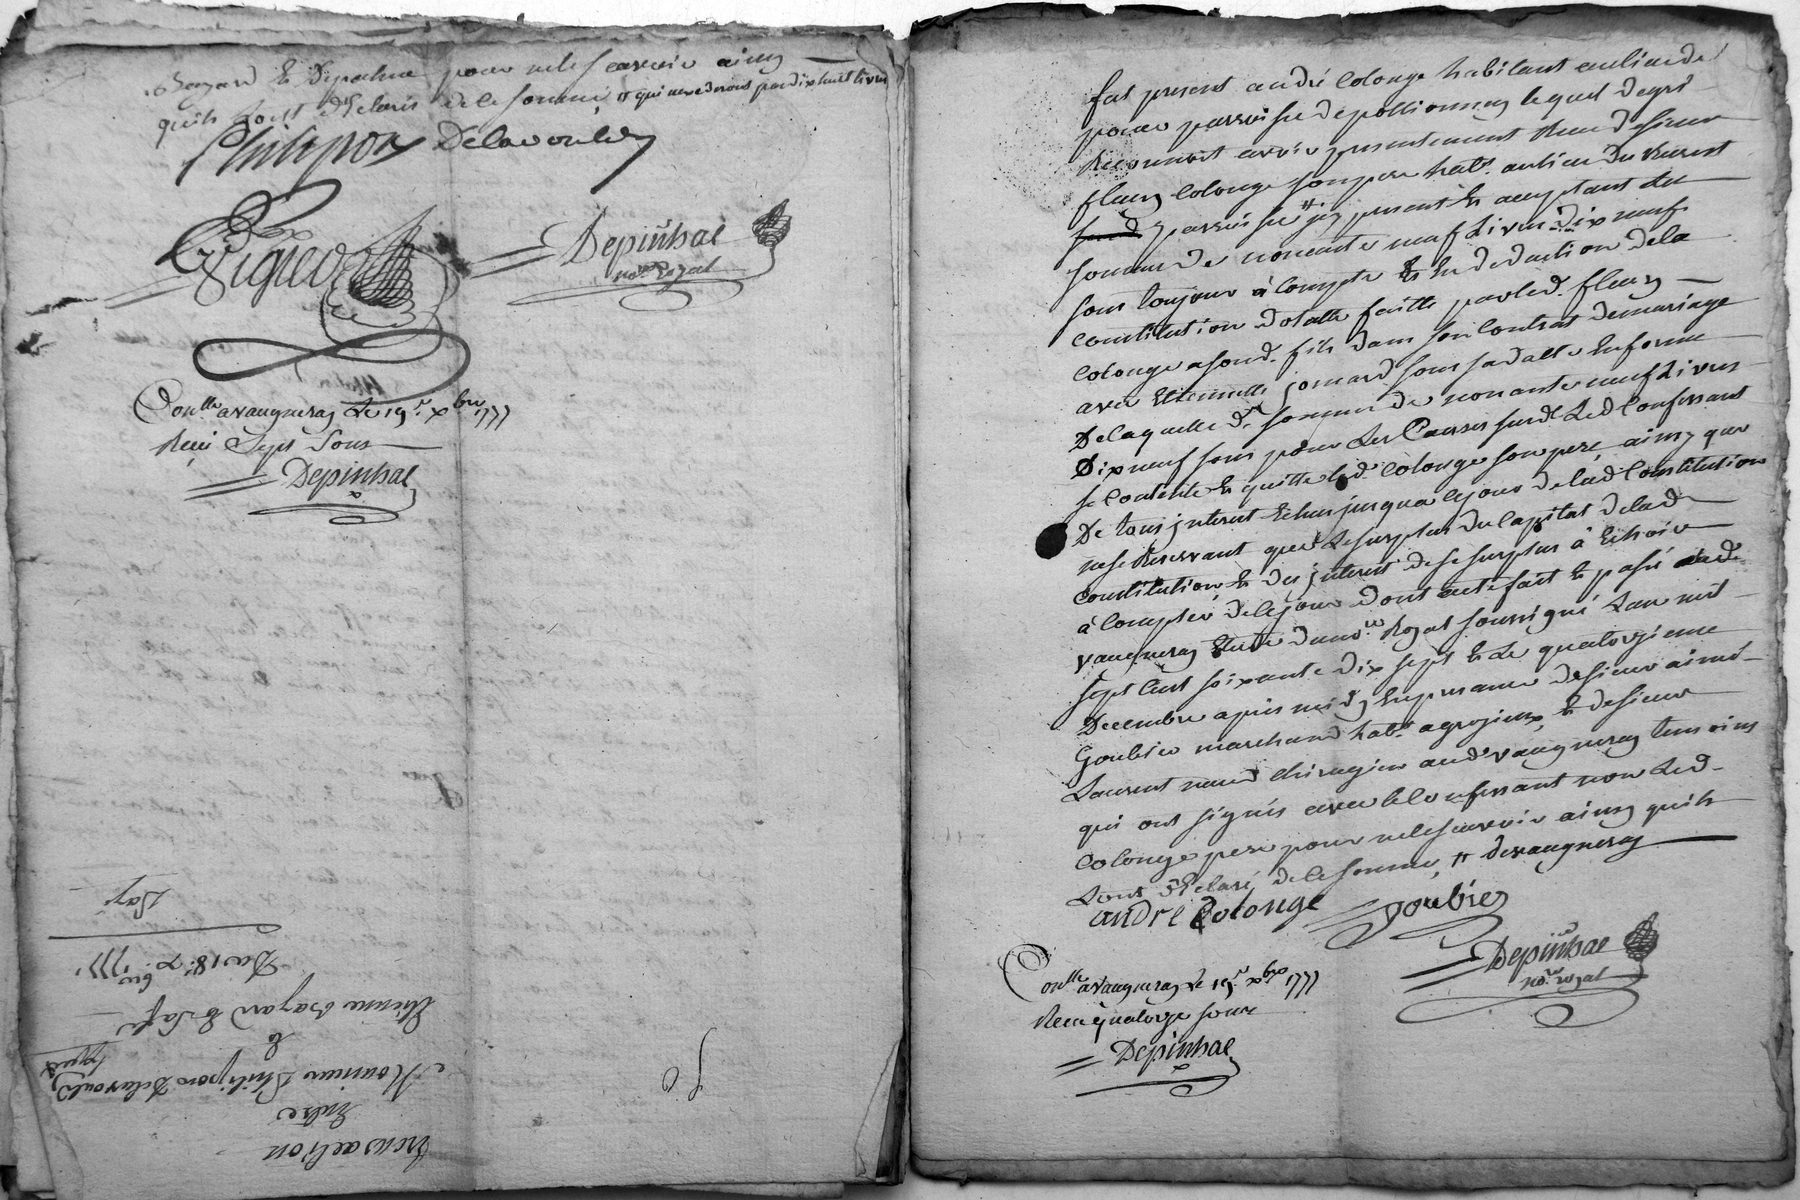 Bazard et Depalme pour ne le scavoir ainsy
quils l'ont declaré de ce sommé // qui nexcederont pas dix huit livres
Philipon Delavoulée
Vigne
Depinhac
nore royal
Conllé a vaugneray Le 19e xbre 1777
Reçu Sept Sous
Depinhac
Transaction
Entre
Monsieur Philipon Delavoulée
&
Etienne Bazard & Sa fe
Du 18e xbre 1777
fut present andré Colonge habitant au lieu de
pour parroisse de pollionnay lequel de gré
reconnoit avoir presentement Receu de sieur
fleury Colonge son pere habt. au lieu du
parroisse // icy present et acceptant La
somme de nonante neuf Livres dix neuf
sous toujours à Compte et en deduction de la
constitution dotalle faitte par led. fleury
colonge asond. fils dans son Contrat de mariage
avec Etiennette jomard sous sa datte En forme
De laquelle de. somme de nonante neuf Livres
Dix neuf sous pour Les Causes susd. Led. Confessant
se Contente et quitte led. Colonge son pere, ainsy que
De tous jnterest Echus jusqua ce jour de lad. Constitution
ne se Reservant que Le surplus du Capital de lad.
constitution et des jnterest de ce surplus à Echoir
à Compter de ce jour dont acte fait et passé aud.
vaugneray Etude du nore. Royal soussigné Lan mil
sept Cent soixante dix sept et Le quatorzieme
Decembre apres midy En presence de sieur aimé
Goubier marchand habt. a grezieux, et de sieur
Laurent chirurgien aud. vaugneray temoins
qui ont signés avec le Confessant non Led.
Colonge pere pour ne le scavoir ainsy quils
Lont declaré de ce sommé, // de vaugneray
andré Colonge goubier
Depinhac
nore. royal
Conllé a vaugneray Le 19e. xbre 1777
Reçu quatorze sous
Depinhac